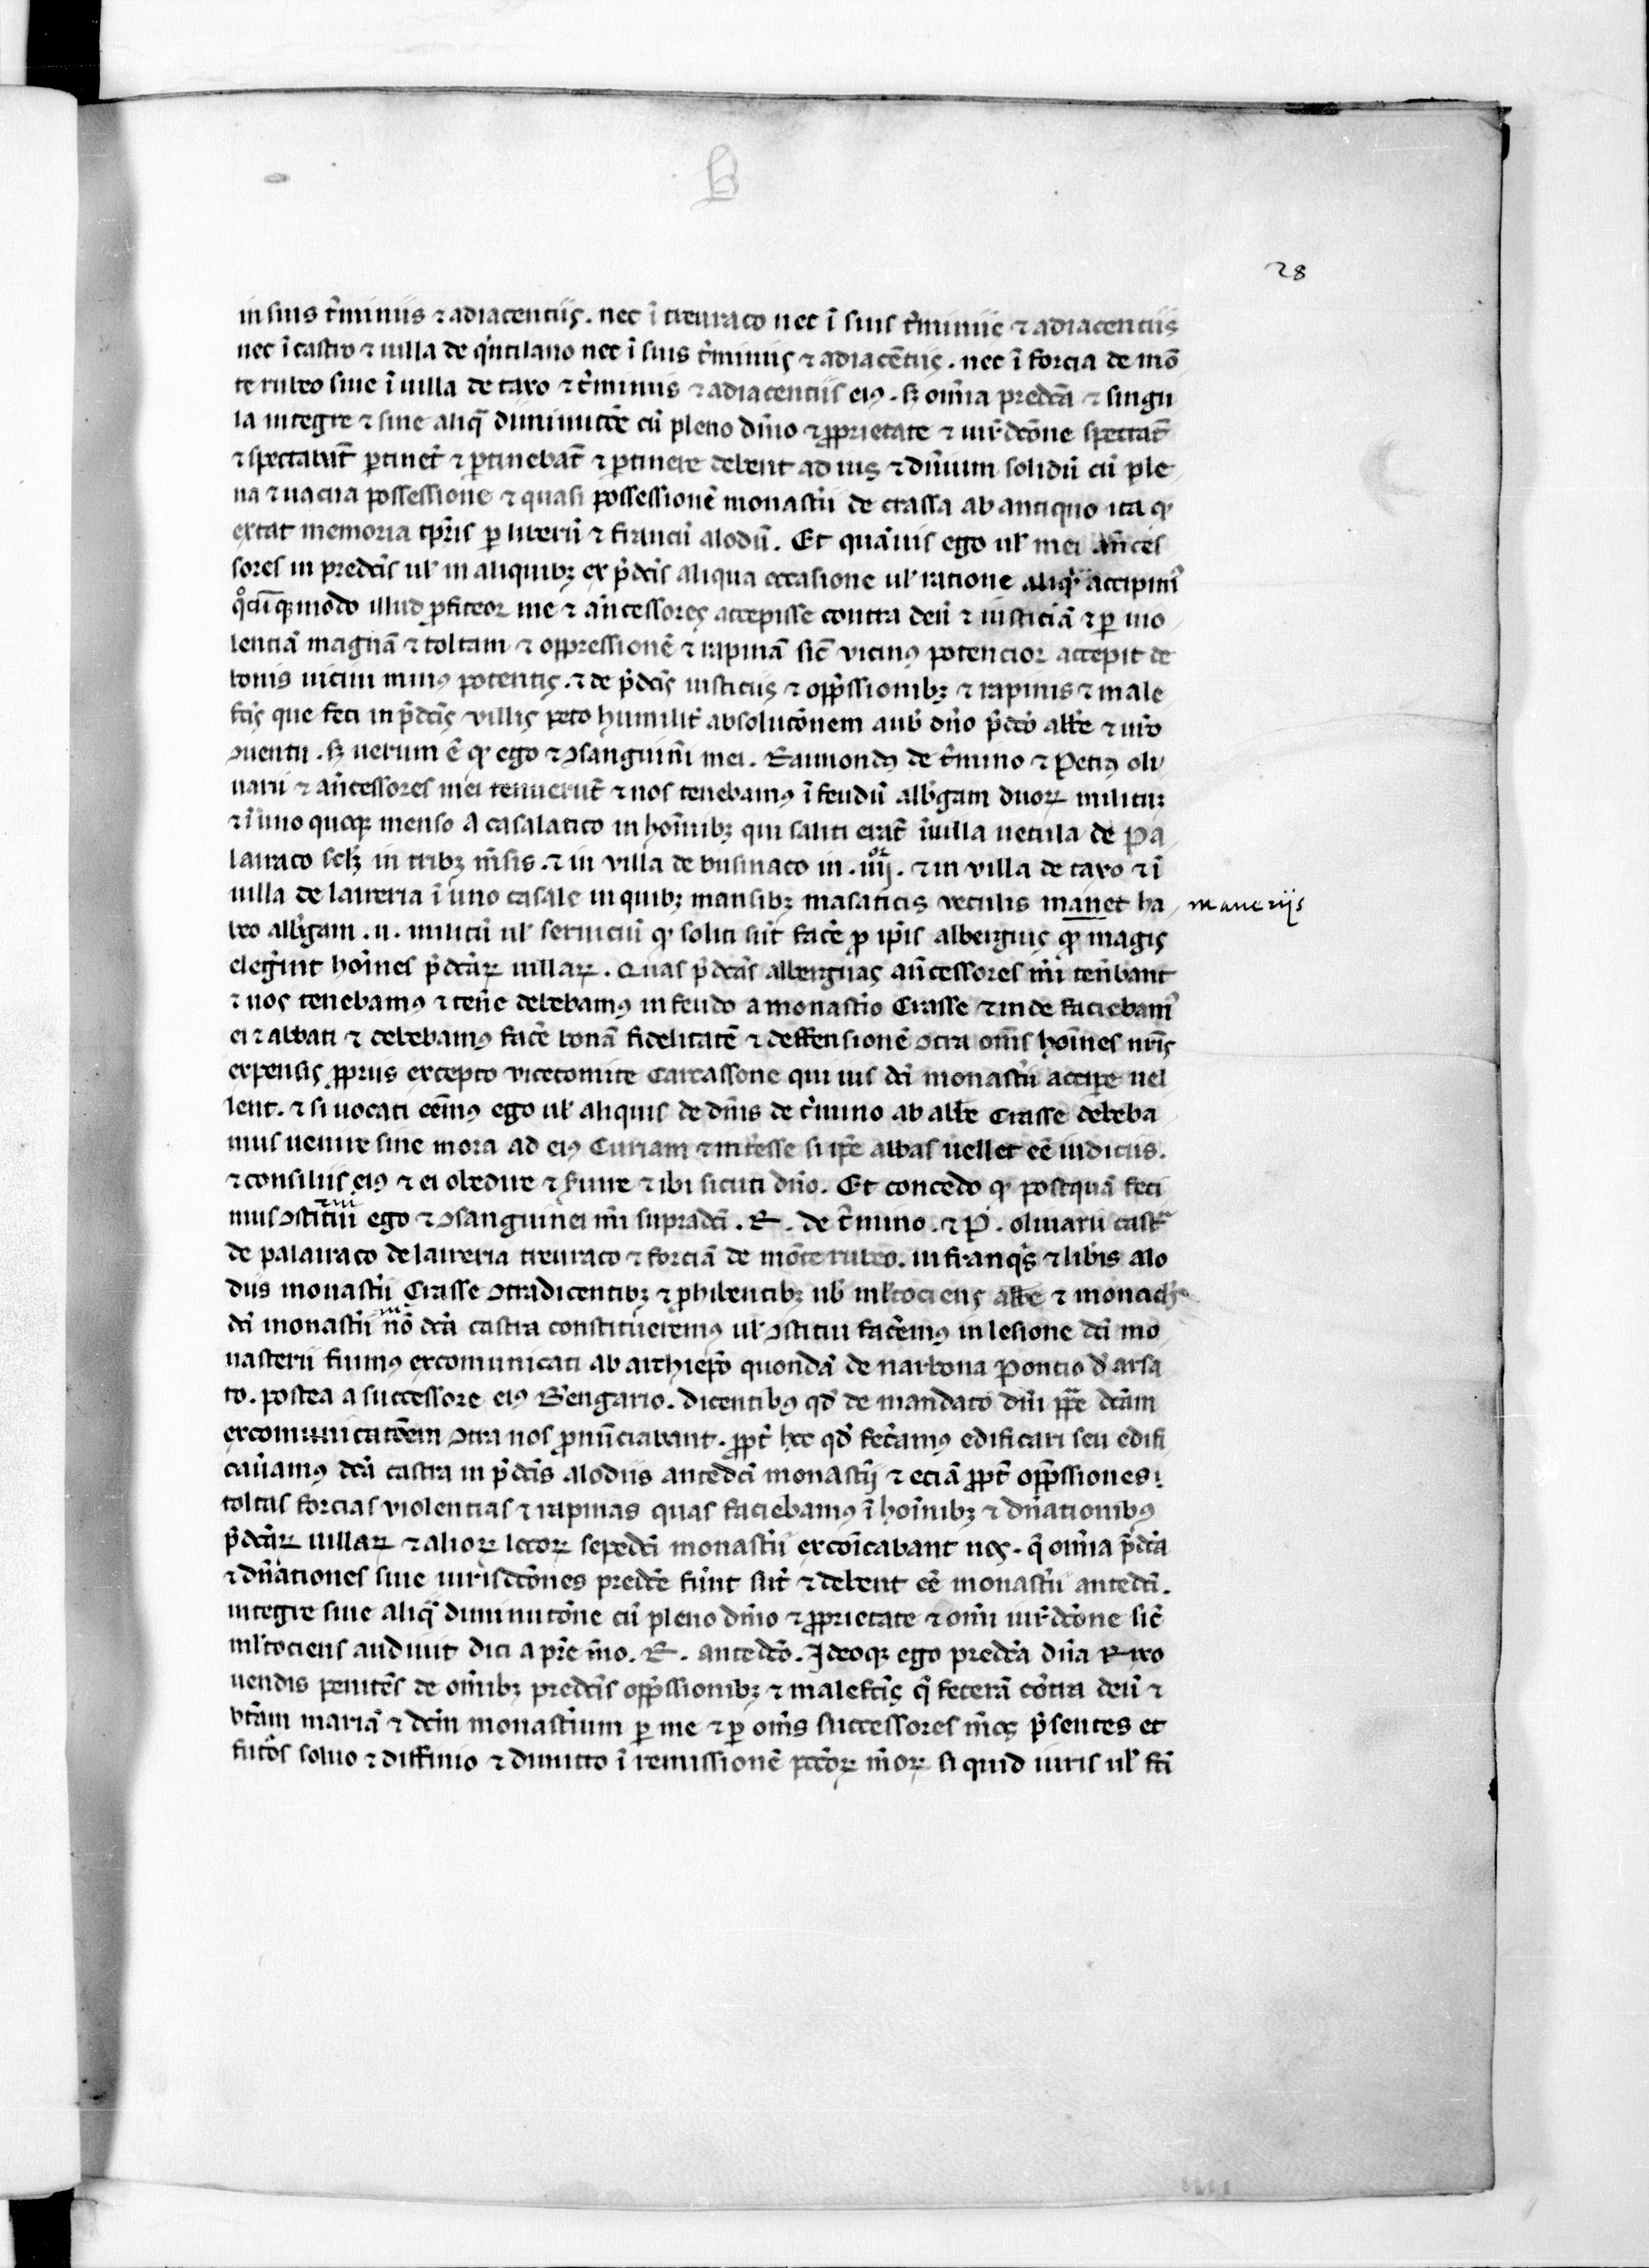 28
in suis t̄miniis ⁊ adiacentiis. nec ī treuraco nec ī suis t̄miniis ⁊ adiacentiis
nec ī castro ⁊ uilla de q̍ntilano nec ī suis t̄miniis ⁊ adiacētiis. nec ī forcia de mō
te rubeo siue ī uilla de taxo ⁊ t̄miniis ⁊ adiacentiis eiꝰ. sꝫ om̄ia predc̄a ⁊ singu
la integre ⁊ sine aliq̄ diminuc̄ōe cū pleno dn̄io ⁊ ꝓprietate ⁊ iur̄dc̄ōne spectāt
⁊ spectabāt ꝑtinēt ⁊ ꝑtinebāt ⁊ ꝑtinere debent ad ius ⁊ dn̄ium solidū cū ple
na ⁊ uacua possessione ⁊ quasi possessionē monast̄ii de crassa ab antiquo ita ꝙ
extat memoria tp̄ris ꝑ liberū ⁊ francū alodū. Et quāuis ego ul̄ mei ān̄ces
sores in predc̄is ul̄ in aliquibꝫ ex p̄dc̄is aliqua occasione ul̄ ratione aliq̍ accipim̄ꝰ
q̊cūqꝫ modo illud ꝓfiteor me ⁊ ān̄cessores accepisse contra deū ⁊ iusticiā ⁊ ꝑ uio
lentiā magnā ⁊ toltam ⁊ oppressionē ⁊ rapinā sic̄ vicinꝰ potencior accepit de
bonis uicini minꝰ potentis. ⁊ de p̄dc̄is iusticiis ⁊ opp̄ssionibꝫ ⁊ rapinis ⁊ male
fc̄is que feci in p̄dc̄is villis peto humilit̄ absolutōnem a uob̄ dn̄o p̄dc̄o abb̄e ⁊ ur̄o
ꝯuentu. sꝫ uerum ē ꝙ ego ⁊ ꝯsanguin̄i mei. Raimondꝰ de t̄mino ⁊ Petrꝰ oli
uarii ⁊ ān̄cessores mei tenuerūt ⁊ nos tenebamꝰ ī feudū alb̄gam duoꝝ militū
⁊ ī uno quoqꝫ menso A casalatico in hoīnibꝫ qui saluti erāt ī uilla uetula de Pa
lairaco scl̄ꝫ in tribꝫ m̄sis. ⁊ in villa de businaco in .iiij.or ⁊ in villa de taxo ⁊ ī
uilla de laireria ī uno casale in quibꝫ mansibꝫ masaticis vetulis manet ha
maneriis
beo alb̄gam .ii. militū ul̄ seruiciū ꝙ soliti sūt fac̄e ꝓ ip̄is alberguis ꝙ magis
eleḡint hoīnes p̄dc̄aꝝ uillaꝝ. Quas p̄dc̄as alberguas ān̄cessores m̄i ten̄bant
⁊ nos tenebamꝰ ⁊ ten̄e debebamꝰ in feudo a monast̄io Crasse ⁊ inde faciebamꝰ
ei ⁊ abbati ⁊ debebamꝰ fac̄e bonā fidelitatē ⁊ deffensionē ꝯtra om̄s hoīnes nr̄is
expensis ꝓpriis excepto vicecomite Carcassone qui ius dc̄i monast̄ii accipe uel
lent. ⁊ si uocati eēmꝰ ego ul̄ aliquis de dn̄is de t̄mino ab abb̄e Crasse debeba
mus uenire sine mora ad eiꝰ Curiam ⁊ int̄esse si ip̄e abbas uellet eē iudiciis.
⁊ consiliis eiꝰ ⁊ ei obedire ⁊ s̄uire ⁊ ibi sicuti dn̄o. Et concedo ꝙ postquā feci
mus ꝯstitui ego ⁊ ꝯsanguinei m̄i supradc̄i .R. de t̄mino. ⁊ P̄. oliuarii castᵃ
de palairaco de laireria treuraco ⁊ forciā de mōte rubeo. in franq̍s ⁊ lib̄is alo
diis monast̄ii Crasse ꝯtradicentibꝫ ⁊ ꝓhibentibꝫ nb̄ ml̄tociens abb̄e ⁊ monach̍
dc̄i monast̄ii nō dc̄a castra constitueremꝰ ul̄ ꝯstitui fac̄emꝰ in lesione dc̄i mo
nasterii fuimꝰ excomunicati ab archiep̄o quondā de narbona Poncio d̍ arsa
to. postea a successore eiꝰ B̄engario. dicentibꝰ qd̍ de mandato dn̄i pp̄e dc̄am
excomunicatōem ꝯtra nos ꝓnūciabant. ꝓpt̄ hec qd̍ fec̄amꝰ edificari seu edifi
cau̅amꝰ dc̄a castra in p̄dc̄is alodiis antedc̄i monast̄ij ⁊ eciā ꝓpt̄ opp̄ssiones.
toltas forcias violentias ⁊ rapinas quas faciebamꝰ ī hoīnibꝫ ⁊ dn̄ationibꝰ
p̄dc̄aꝝ uillaꝝ ⁊ alioꝝ locoꝝ sepedc̄i monast̄ii excoīcabant nos. q̄ om̄ia p̄dc̄a
⁊ dn̄ationes siue iurisdc̄ōnes predc̄e fūnt sūt ⁊ debent eē monast̄ii antedc̄i.
integre sine aliq̄ diminutōne cū pleno dn̄io ⁊ ꝓprietate ⁊ om̄i iur̄dc̄ōne sic̄
ml̄tociens audiuit dici a pr̄e m̄o. R. antedc̄o. Ideoqꝫ ego predc̄a dn̄a Rixo
uendis penitēs de om̄ibꝫ predc̄is opp̄ssionibꝫ ⁊ malefc̄is q̄ fecerā cōtra deū ⁊
bt̄am mariā ⁊ dc̄m monast̄ium ꝑ me ⁊ ꝑ om̄s successores m̄os p̄sentes et
fut̄os soluo ⁊ diffinio ⁊ dimitto ī remissionē pcc̄oꝝ m̄oꝝ si quid iuris ul̄ fc̄i